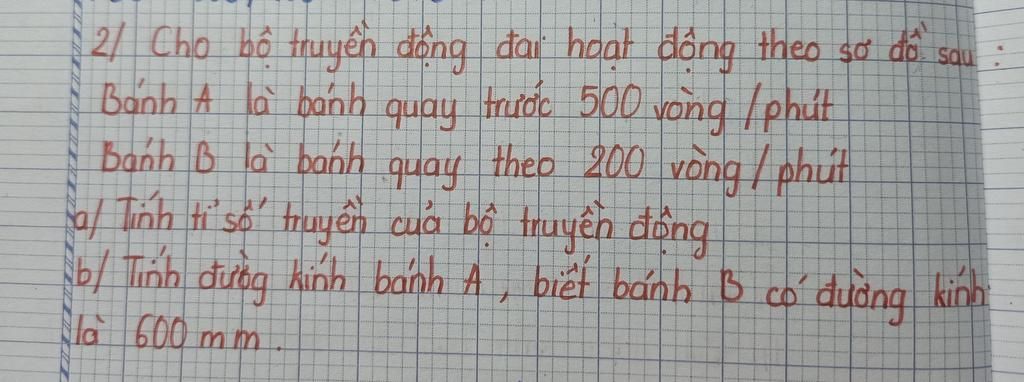 2/ Cho bộ truyền động đai hoạt động theo sơ đồ sau:
Bánh A là bánh quay trước 500 vòng/phút
Bánh B là bánh quay theo 200 vòng/phút
a/ Tính tỉ số truyền của bộ truyền động
b/ Tính đường kính bánh A, biết bánh B có đường kính
là 600 mm.